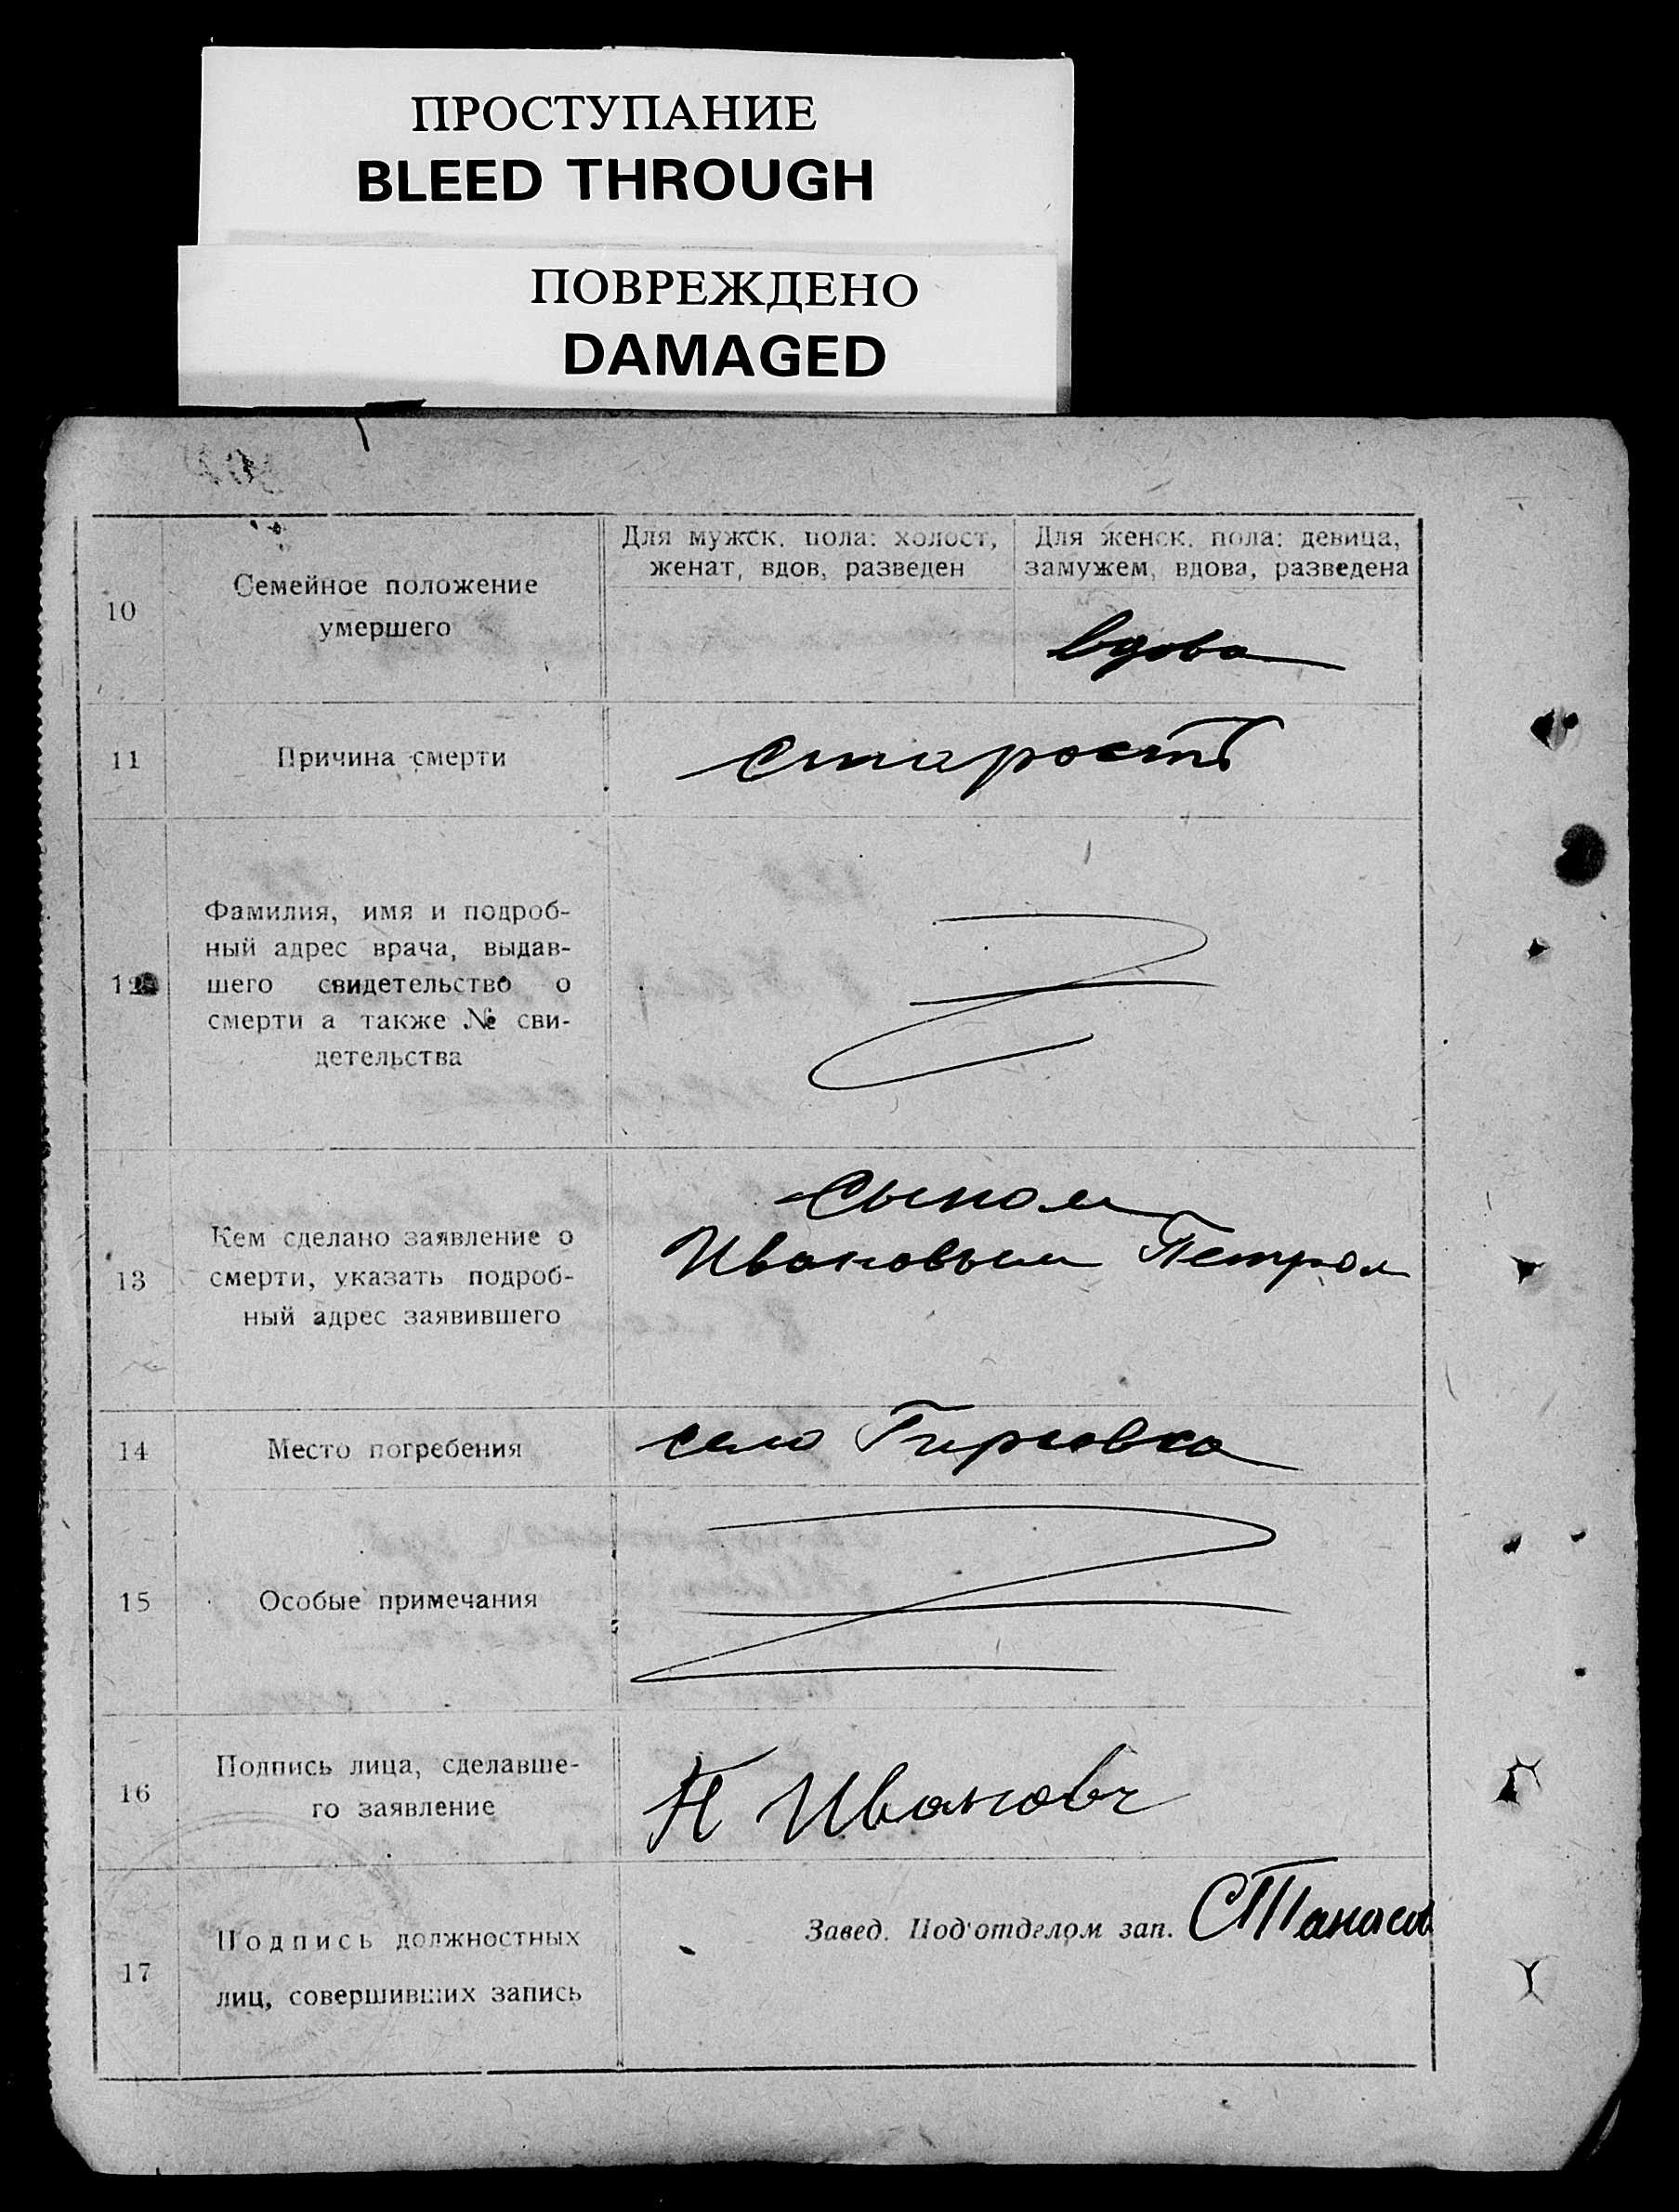 ПРОСТУПАНИЕ
BLEED THROUGH
ПОВРЕЖДЕНО
DAMAGED
10
Семейное положение
умершего
Для мужск. пола: холост,
женат, вдов, разведен
Для женск. пола: девица,
замужем, вдова, разведена
вдова
11
Причина смерти
старость
12
Фамилия, имя и подроб-
ный адрес врача, выдав-
шего свидетельство о
смерти а также № сви-
детельства
13
Кем сделано заявление о
смерти, указать подроб-
ный адрес заявившего
Сыном
Ивановым Петром
14
Место погребения
село
15
Особые примечания
16
Подпись лица, сделавше-
го заявление
П Ивановъ
17
Подпись должностных
лиц, совершивших запись
Завед. Под'отделом зап.